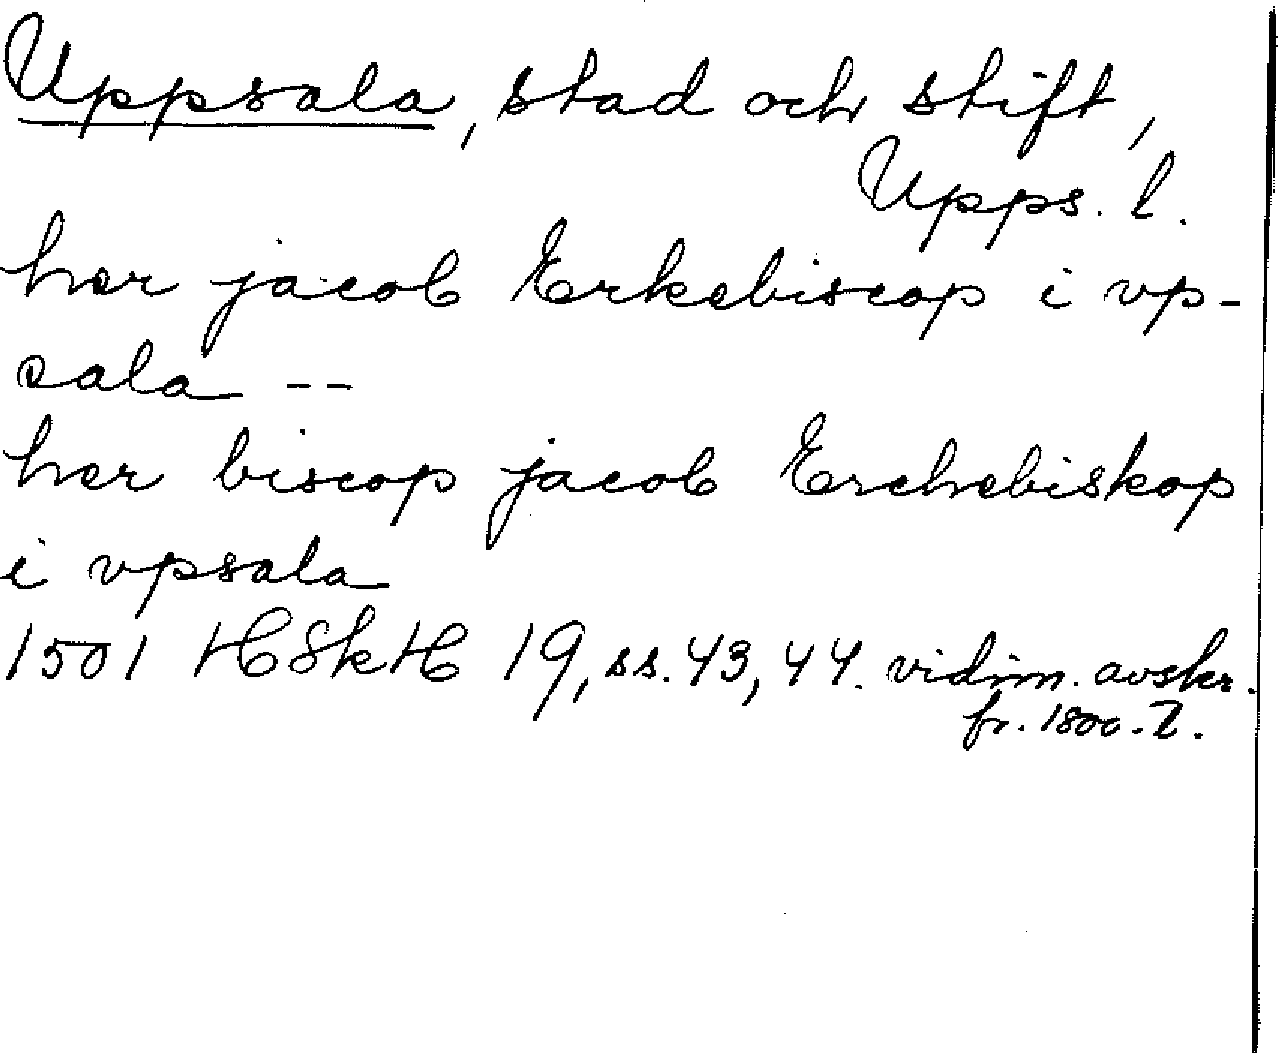 Uppsala, stad och stift,
Upps. l.
her jacob Erkebiscop i vp-
sala --
her biscop jacob Erchebiskop
i vpsala
1501 HSkH 19, ss. 43, 44. vidim. avskr.
fr. 1800-t.